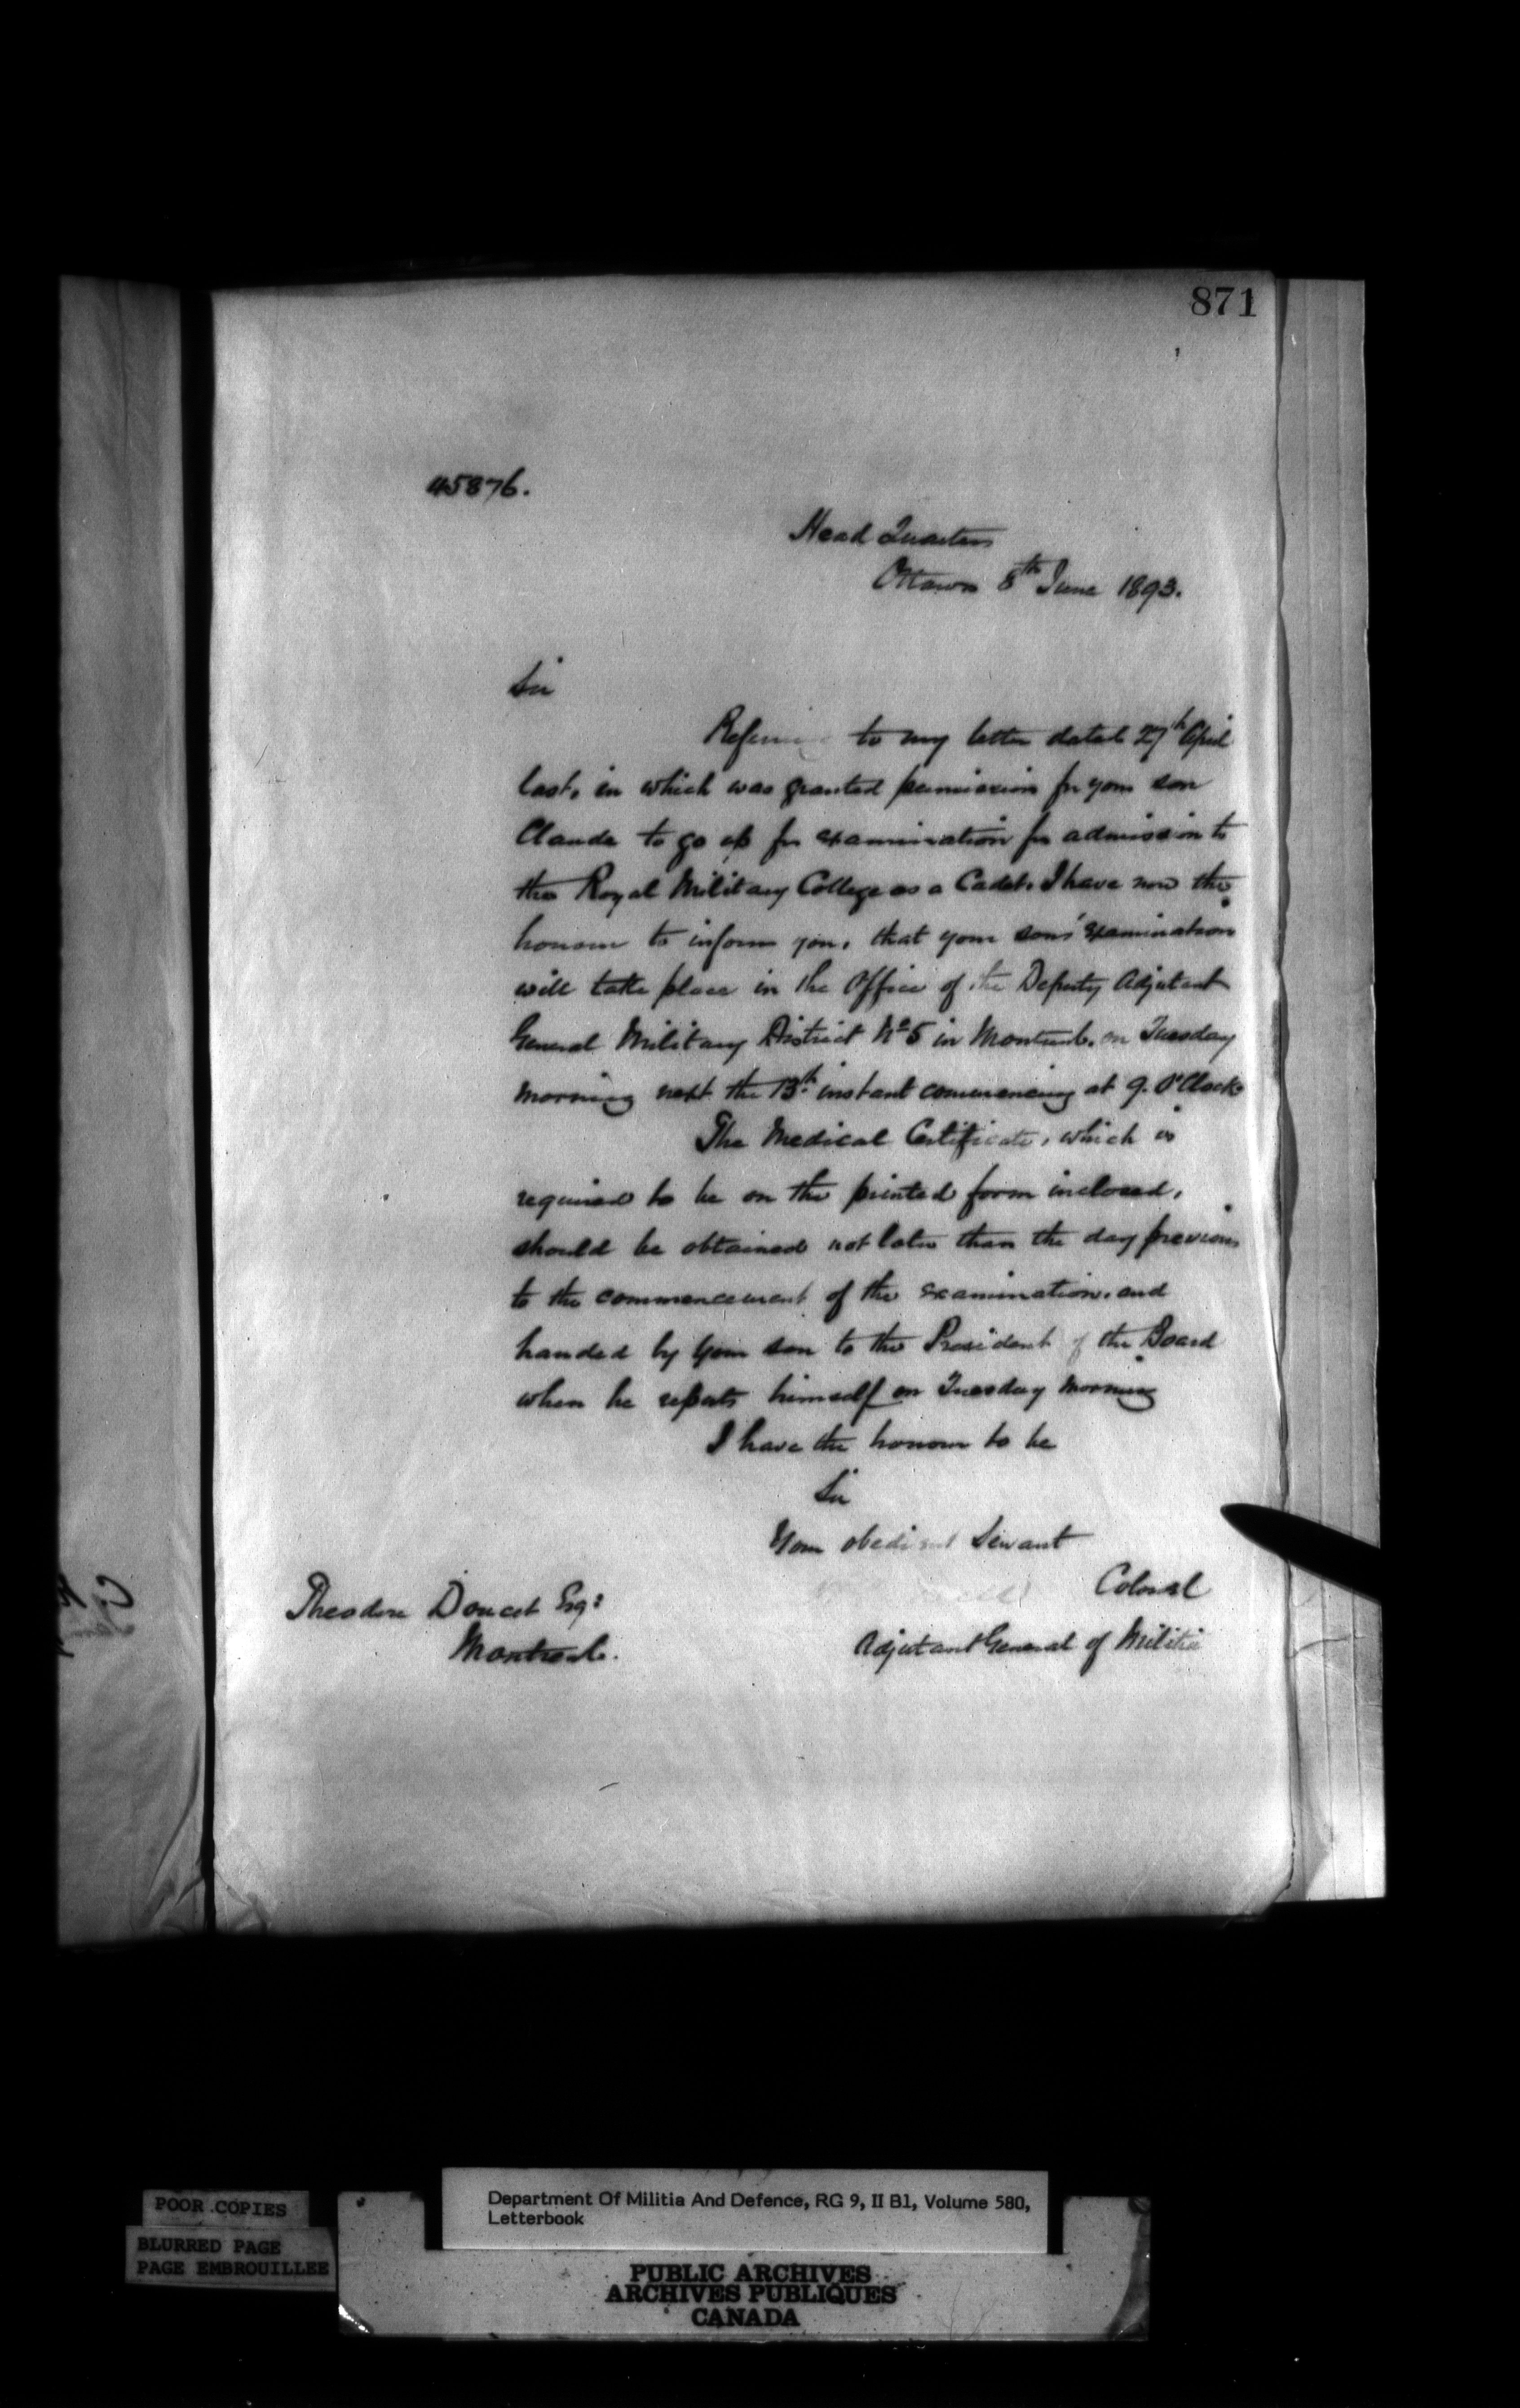 871
45876.
Head Quarters
Ottawa 8th June 1893.
Sir
Referring to my letter dated 27th April
last, in which was granted permission for your son
Claude to go up for examination for admission to
the Royal Military College as a Cadet. I have now the
honour to inform you, that your sons' examination
will take place in the Office of the Deputy Adjutant
General Military District No 5 in Montreal, on Tuesday
morning next the 13th instant commencing at 9. O'Clock
The Medical Certificate, which is
required to be on the printed form inclosed,
should be obtained not later than the day previous
to the commencement of the examination, and
handed by your son to the President of the Board
when he reports himself on Tuesday morning
I have the honour to be
Sir
Your obedient Servant
Colonel
Theodore Doucet Esq:
Adjutant General of Militia
Montreal.
POOR COPIES
BLURRED PAGE
PAGE EMBROUILLEE
Department Of Militia And Defence, RG 9, II B1, Volume 580,
Letterbook
PUBLIC ARCHIVES
ARCHIVES PUBLIQUES
CANADA